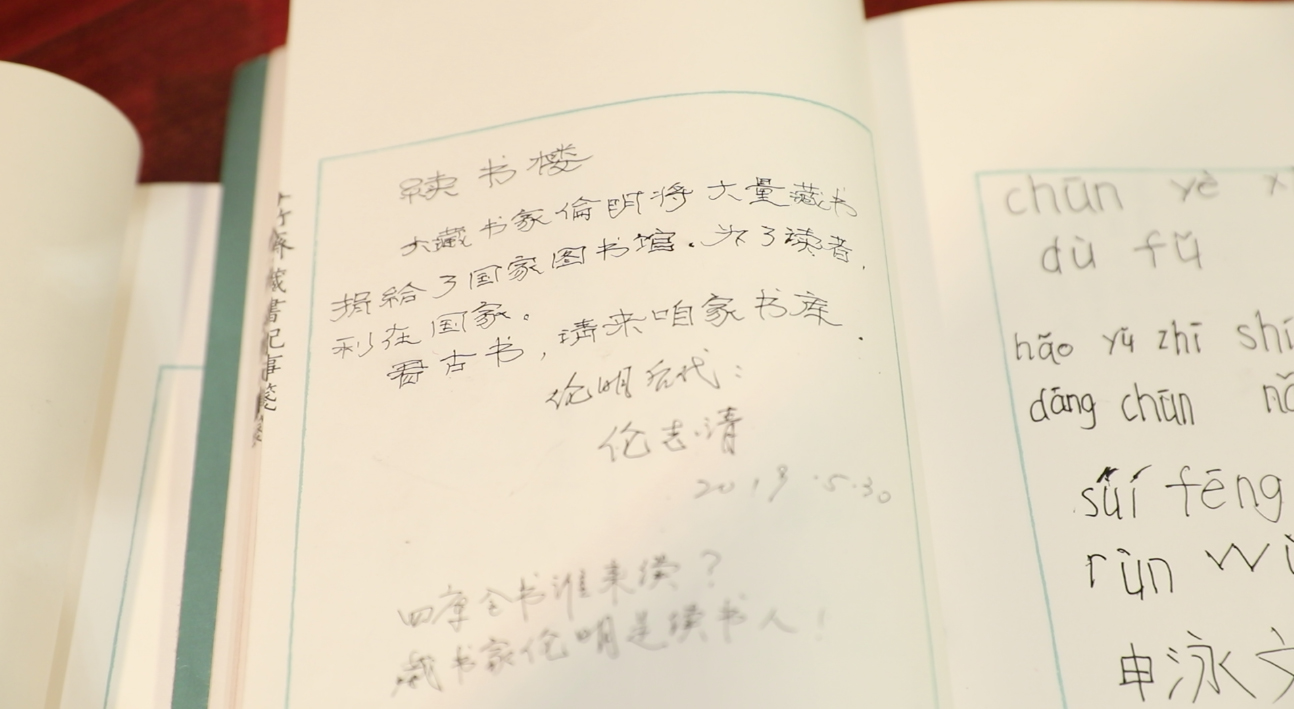 续书楼
大藏书家倫明将大量藏书
捐给了国家图书馆.为了读者,
利在国家。
看古书,请来咱家书库.
伦明后代:
伦志清
2019.5.30
四库全书谁来续?
藏书家伦明是续书人!
藏書記事箋
chūn yè x
dù fǔ
hǎo yǔ zhī shí
dāng chūn nǎ
suí fēng
rùn wù
申泳文